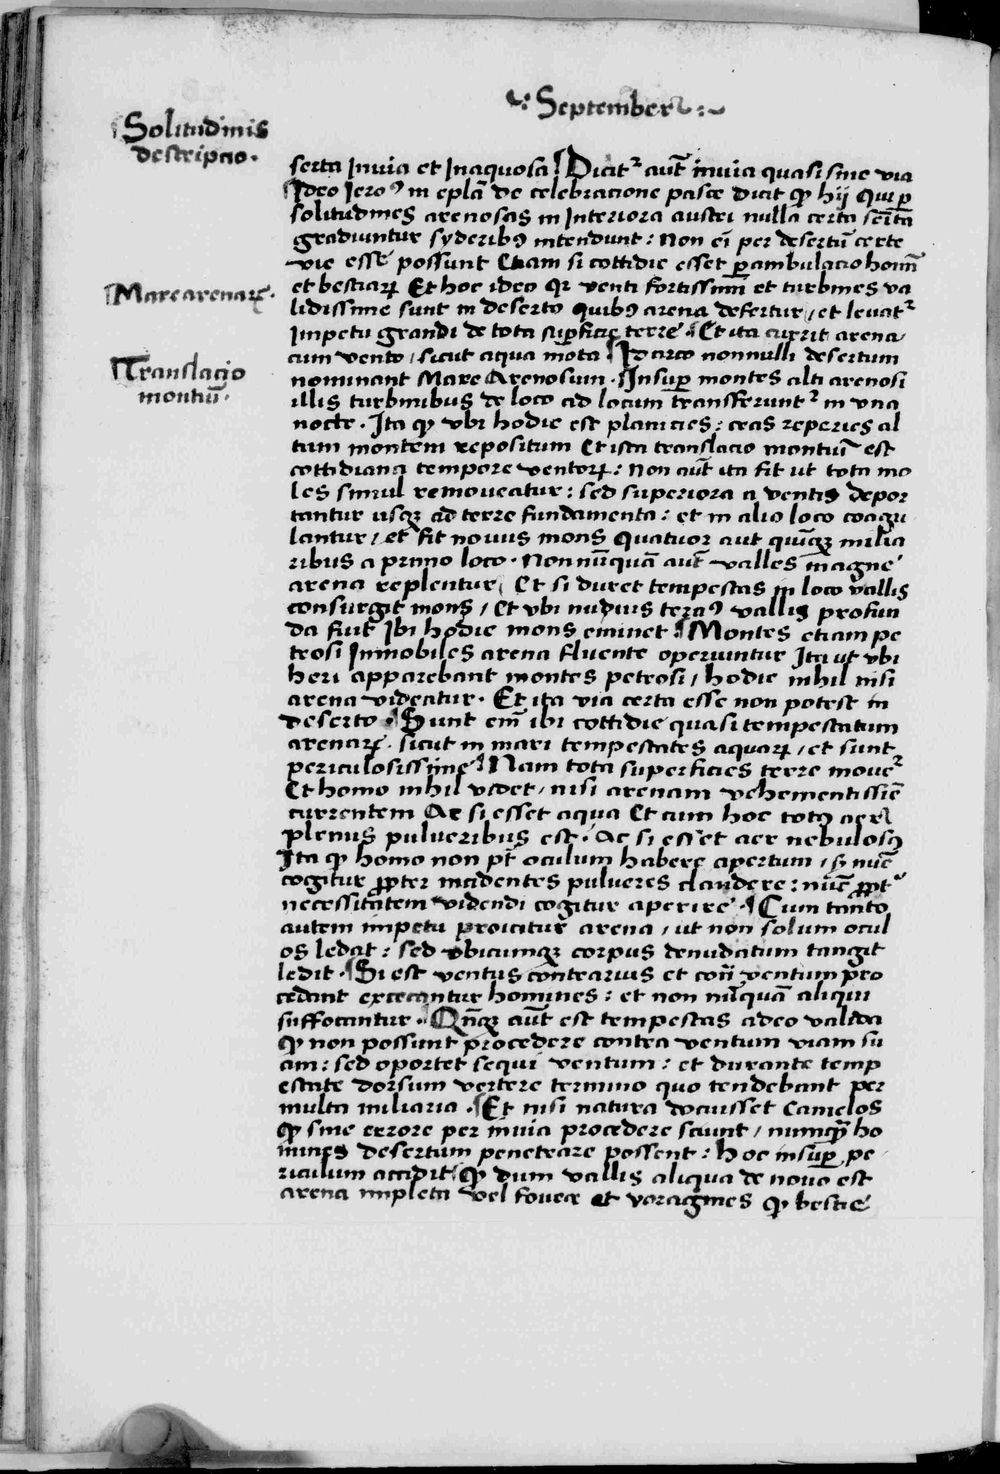 September
Solitudinis
descripcio.
serta Inuia et Inaquosa Dicit᷑ aut̄ inuia quasi sine via
Ideo Iero⁹ in eplā de celebracione pasce dicit ꝙ hij Qui ꝑ
solitudines arenosas in Interiora austri nulla certa semita
gradiuntur syderib⁹ intendunt : Non em̄ per desertū certe
vie esse possunt Etiam si cottidie esset ꝑambulacio hominū
Mare arenarꝝ.
et bestiarꝝ Et hoc ideo qꝛ venti fortissimi et turbines va
lidissime sunt in deserto Quib⁹ arena defertur / et leuat᷑
Impetu grandi de tota suꝑficie terre Et ita currit arena
cum vento / sicut aqua mota Id circo nonnulli desertum
Translacio
montiū.
nominant Mare Arenosum . Insuꝑ montes alti arenosi
illis turbinibus de loco ad locum transferunt᷑ in vna
nocte . Ita ꝙ vbi hodie est planicies : cras reperies al
tum montem repositum Et ista translacio montiū est
cottidiana tempore ventorꝝ : Non aut̄ ita fit ut tota mo
les simul remoueatur : sed superiora a ventis depor
tantur usqꝫ ad terre fundamenta : et in alio loco coagu
lantur / et fit nouus mons Quatuor aut quinqꝫ milia
ribus a primo loco . Non nūquā aut̄ valles magne
arena replentur / Et si duret tempestas in loco vallis
consurgit mons / Et vbi nudius terci⁹ vallis profun
da fuit Ibi hodie mons eminet Montes etiam pe
trosi Inmobiles arena fluente operiuntur Ita ut vbi
heri apparebant montes petrosi / hodie nihil nisi
arena videatur . Et ita via certa esse non potest in
deserto . Sunt em̄ ibi cottidie quasi tempestatum
arenarꝝ . sicut in mari tempestates aquarꝝ / et sunt
periculosissime Nam tota superficies terre mouet᷑
Et homo nihil videt / nisi arenam vehementissīe
currentem Ac si esset aqua Et cum hoc tot⁹ aer
plenus pulueribus est . Ac si esset aer nebulos⁹
Ita ꝙ homo non pt̄ oculum habere apertum / sꝫ nūc
cogitur ꝓpter incidentes pulueres claudere : nūc ꝓpt᷑
necessitatem videndi cogitur aperire . Cum tanto
autem impetu proicitur arena / ut non solum ocul
os ledat : sed vbicumqꝫ corpus denudatum tangit
ledit . Si est ventus contrarius et contra ventum pro
cedant excecantur homines : et non nūquā aliqui
suffocantur . Qn̄qꝫ aut̄ est tempestas adeo valida
ꝙ non possunt procedere contra ventum viam su
am : sed oportet sequi ventum : et durante temp
estate dorsum vertere termino quo tendebant per
multa miliaria . Et nisi natura docuisset Camelos
ꝙ sine errore per inuia procedere sciunt / numꝙ̄ ho
mines desertum penetrare possent : hoc insuꝑ pe
riculum accidit ꝙ dum vallis aliqua de nouo est
arena impleta vel fouee et voragines ꝙ bestie